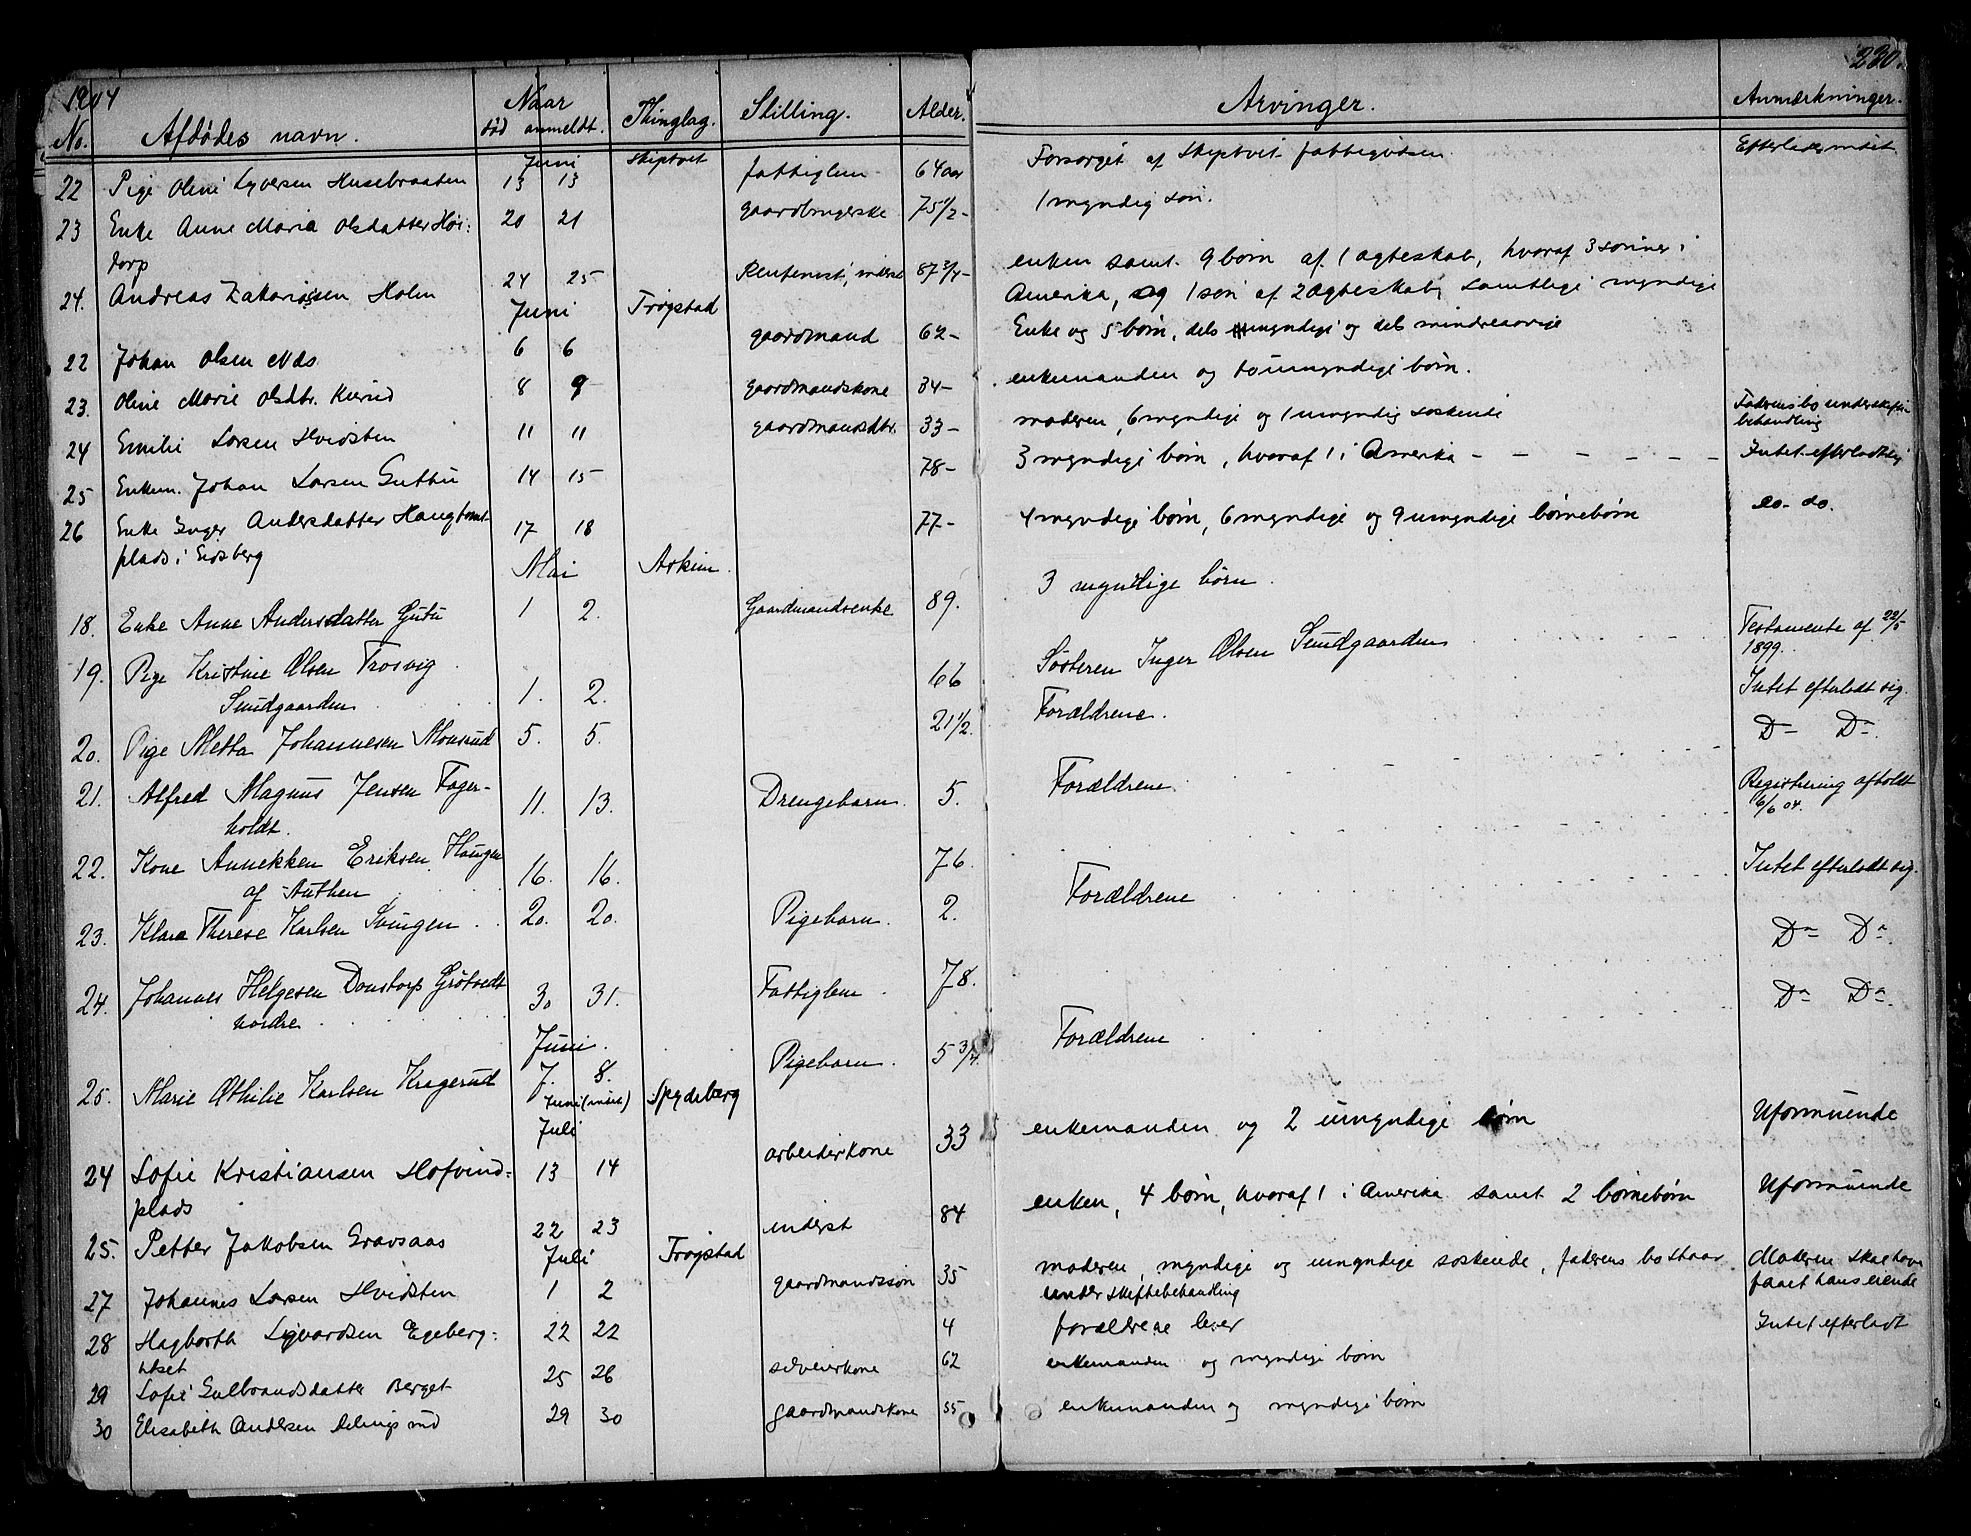 1904 230.
No. Afdødes navn. Naar død anmeldt. Thinglag. Stilling. Alder. Arvinger. Anmærkninger.
Juni Skiptvet
22 Pige Oline Syversen Husebraaten 13 13 fattiglem 64 aar Forsørget af Skiptvet fattigvæsen Efterlader intet
23 Enke Anne Maria Olsdatter Høi: 20 21 gaardbrugerske 75 1/2 - 1 myndig søn.
dorp
24. Andreas Zakariassen Holm 24 25 Rentenist, inderst 87 3/4 - enken samt 9 børn af 1 ægteskab, hvoraf 3 sønner i
Amerika, og 1 søn af 2 ægteskab, samtlige myndige
Juni Trøgstad
22 Johan Olsen Næs 6 6 gaardmand 62 - Enke og 5 børn, dels umyndige og dels mindreaarige
23. Oline Marie Olsdtr. Kirud 8 9 gaardmandskone 34 - enkemanden og to umyndige børn.
24 Emilie Larsen Hvidsten 11 11 gaardmandsdtr. 33 - moderen, 6 myndige og 1 umyndig søskende Faderens bo under skifte
behandling
25 Enkem. Johan Larsen Guttu 14 15 78 - 3 myndige børn, hvoraf 1 i Amerika - - - - - - Intet efterladt sig
26 Enke Inger Andersdatter Haugtomt- 17 18 77 - 4 myndige børn, 6 myndige og 9 umyndige børnebørn do. do.
plads i Eidsberg
Mai Askim
18. Enke Anne Andersdatter Gutu 1 2. Gaardmandsenke 89. 3 myndige børn.
19. Pige Kristine Olsen Trosvig 1. 2. 66 Søsteren Inger Olsen Sundgaarden Testamente af 22/5
Sundgaarden 1899.
20. Pige Metta Johannesen Monsrud 5. 5. 21 1/2. Forældrene. Intet efterladt sig.
21. Alfred Magnus Jensen Fager- 11. 13. Drengebarn 5. Forældrene. Do Do.
holdt.
22. Kone Annekken Eriksen Haugen 16. 16. 76. Registrering afholdt
af Authen 6/6 04.
23. Klara Therese Karlsen Svingen 20. 20. Pigebarn. 2. Forældrene Intet efterladt sig.
24. Johannes Helgesen Donstorp Grøtvedt 30 31. Fattiglem 78. Do Do.
nordre
Juni.
25. Marie Othilie Karlsen Kragerud 7. 8. Pigebarn. 5 3/4. Forældrene Do Do.
Juni (intet) Spydeberg
Juli
24 Sofie Kristiansen Hofvind- 13 14 arbeiderkone 33 enkemanden og 2 umyndige børn Uformuende
plads
25. Petter Jakobsen Gravsaas 22 23 inderst 84 enken, 4 børn, hvoraf 1 i Amerika samt 2 børnebørn Uformuende
Juli Trøgstad
27 Johannes Larsen Hvidsten 1 2 gaardmandssøn 35 moderen, myndige og umyndige søskende, faderens bo staar Moderen skal have
under skiftebehandling faaet hans eiende
28 Hagbarth Sigvardsen Egeberg: 22 22 4 forældrene lever Intet efterladt
29 Sofie Gulbrandsdatter Berget 25 26 selveierkone 62 enkemanden og myndige børn
30 Elisabeth Andersen Delingsrud 29 30 gaardmandskone 55 enkemanden og myndige børn